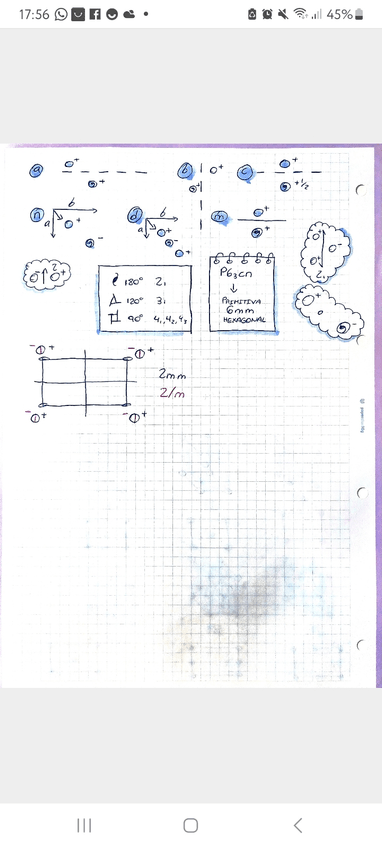 17:56
45%
a
o+
o+
b
o+
o+
c
o+
o+ +1/2
n
b
a
o+
o-
d
b
a
o+
o-
o+
m
o+
o+
o-
2
o+
180° 2₁
120° 3₁
90° 4₁,4₂,4₃
P6₃cn
↓
PRIMITIVA
6mm
HEXAGONAL
o+
o-
o+
2₁
o+
o
o-
- +
- +
2mm
2/m
- +
- +